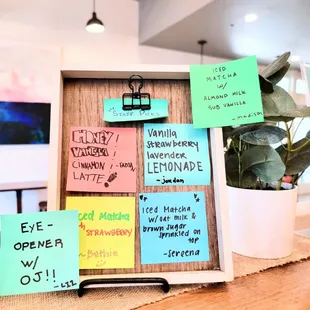 STAFF PICKS
ICED
MATCHA
w/
ALMOND MILK
SUB VANILLA
- madison
HONEY!
VANILLA!
CINNAMON!
LATTE!
Vanilla
Strawberry
lavender
LEMONADE
- jordan
Iced Matcha
w/ STRAWBERRY
- Bethie
Iced Matcha
w/ oat milk &
brown sugar
sprinkled on
top
- Sereena
EYE-
OPENER
w/
OJ!!